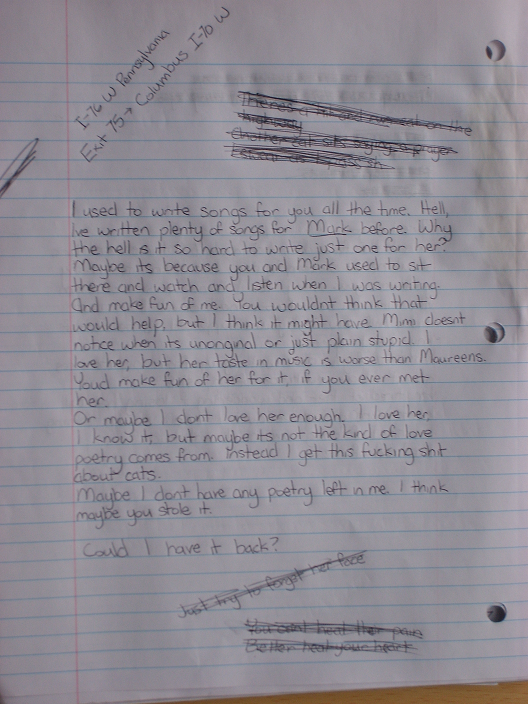 I-76 W Pennsylvania
Exit 75 → Columbus I-70 W
I used to write songs for you all the time. Hell,
Ive written plenty of songs for Mark before. Why
the hell is it so hard to write just one for her?
Maybe its because you and Mark used to sit
there and watch and listen when I was writing.
And make fun of me. You wouldnt think that
would help, but I think it might have. Mimi doesnt
notice when its unoriginal or just plain stupid. I
love her, but her taste in music is worse than Maureens.
Youd make fun of her for it, if you ever met
her.
Or maybe I dont love her enough. I love her,
I know it, but maybe its not the kind of love
poetry comes from. Instead I get this fucking shit
about cats.
Maybe I dont have any poetry left in me. I think
maybe you stole it.
Could I have it back?
Just try to forget her face
You cant heal her pain
Better heal your heart